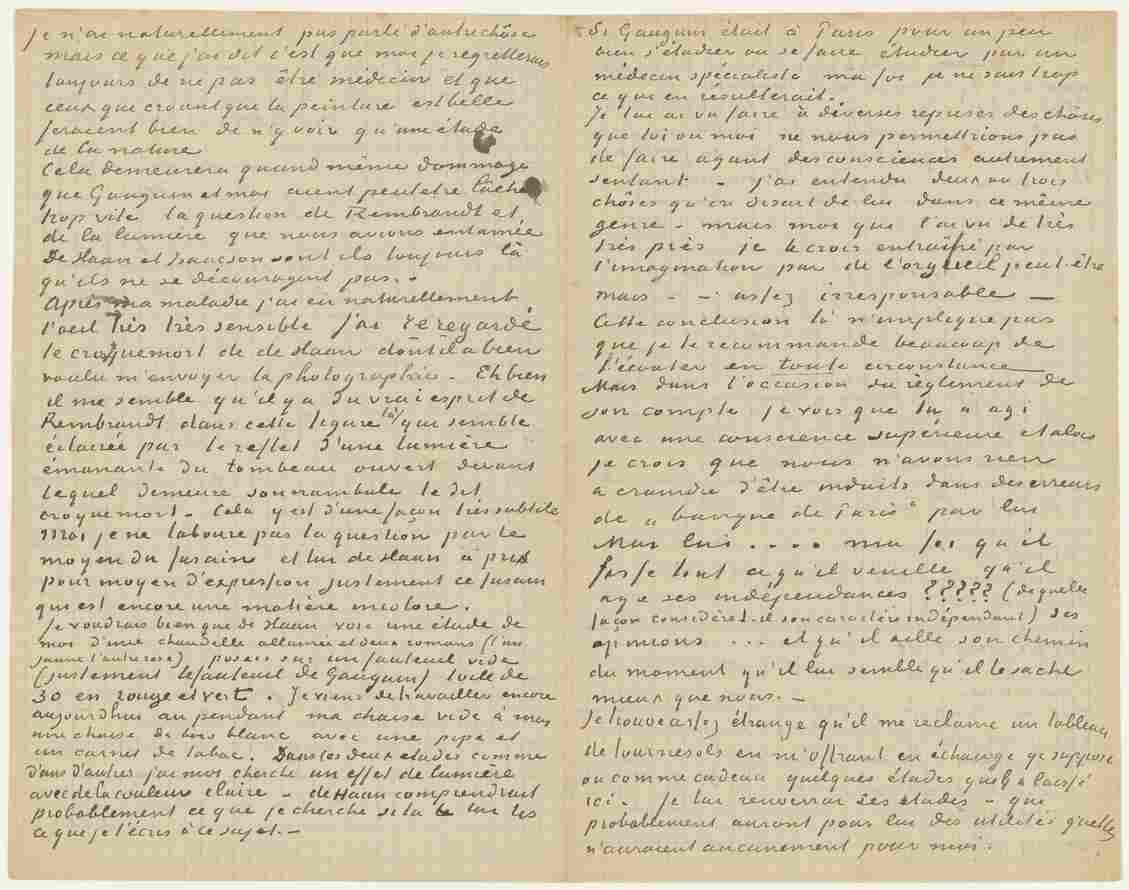 je n'ai naturellement pas parlé d'autre chôse
mais ce que j'ai dit c'est que moi je regretterais
toujours de ne pas être médecin et que
ceux que croient que la peinture est belle
feraient bien de n'y voir qu'une étude
de la nature
Cela demeurera quand même dommage
que Gauguin et moi aient peutetre lâché
trop vite la question de Rembrandt et
de la lumière que nous avions entamée
De Haan et Isaäcson sont ils toujours là
qu'ils ne se découragent pas.-
Après ma maladie j'ai eu naturellement
l'oeil très très sensible j'ai reregardé
le croquemort de de Haan dont il a bien
voulu m'envoyer la photographie. Eh bien
il me semble qu'il y a du vrai esprit de
Rembrandt dans cette figure là qui semble
éclairée par le reflet d'une lumière
émanante du tombeau ouvert devant
lequel demeure sonnambule le dit
croquemort. Cela y est d'une façon très subtile
Moi je ne laboure pas la question par le
moyen du fusain et lui de Haan à pris
pour moyen d'expression justement ce fusain
qui est encore une matière incolore.
Je voudrais bien que de Haan voie une étude de
moi d'une chandelle allumée et deux romans (l'un
jaune l'autre rose) posés sur un fauteuil vide
(justement le fauteuil de Gauguin) toile de
30 en rouge et vert. Je viens de travailler encore
aujourdhui au pendant ma chaise vide à moi
une chaise de bois blanc avec une pipe et
un cornet de tabac. Dans les deux etudes comme
dans d'autres j'ai moi cherché un effet de lumière
avec de la couleur claire - de Haan comprendrait
probablement ce que je cherche si tu lui lis
ce que je t'écris à ce sujet.-
Si Gauguin était à Paris pour un peu
bien s'étudier ou se faire étudier par un
médecin spécialiste ma foi je ne sais trop
ce que en résulterait.
Je lui ai vu faire à diverses reprises des chôses
que toi ou moi ne nous permettrions pas
de faire ayant des consciences autrement
sentant - j'ai entendu deux ou trois
chôses qu'on disait de lui dans ce même
genre - mais moi que l'ai vu de très
très près je le crois entraîné par
l'imagination par de l'orgueil peut-être
mais - - assez irresponsable -
Cette conclusion là n'implique pas
que je te recommande beaucoup de
l'écouter en toute circonstance
Mais dans l'occasion du règlement de
son compte je vois que tu a agi
avec une conscience supérieure et alors
je crois que nous n'avons rien
a craindre d'être induits dans des erreurs
de „banque de Paris" par lui
Mais lui.... ma foi qu'il
fasse tout ce qu'il veuille qu'il
aye ses indépendances ????? (de quelle
façon considère-t-il son caractère indépendant) ses
opinions ... et qu'il aille son chemin
du moment qu'il lui semble qu'il le sache
mieux que nous.-
Je trouve assez étrange qu'il me réclame un tableau
de tournesols en m'offrant en échange je suppose
ou comme cadeau quelques études qu'il a laissé
ici. Je lui renverrai ses études - que
probablement auront pour lui des utilités qu'elles
n'auraient aucunement pour moi.